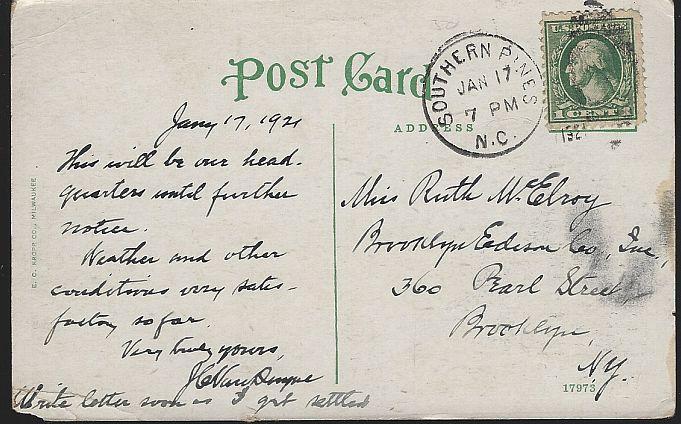 Post Card
ADDRESS
SOUTHERN PINES
JAN 17
7 PM
N.C.
1921
U.S. POSTAGE
1 CENT 1
Jany 17, 1921
This will be our head-
quarters until further
notice.
Weather and other
conditions very satis-
factory so far.
Very truly yours,
Write letter soon as I get settled
Miss Ruth McElroy
Brooklyn Edison Co, Inc,
360 Pearl Street,
Brooklyn,
N.Y.
E. C. KROPP CO., MILWAUKEE
17973